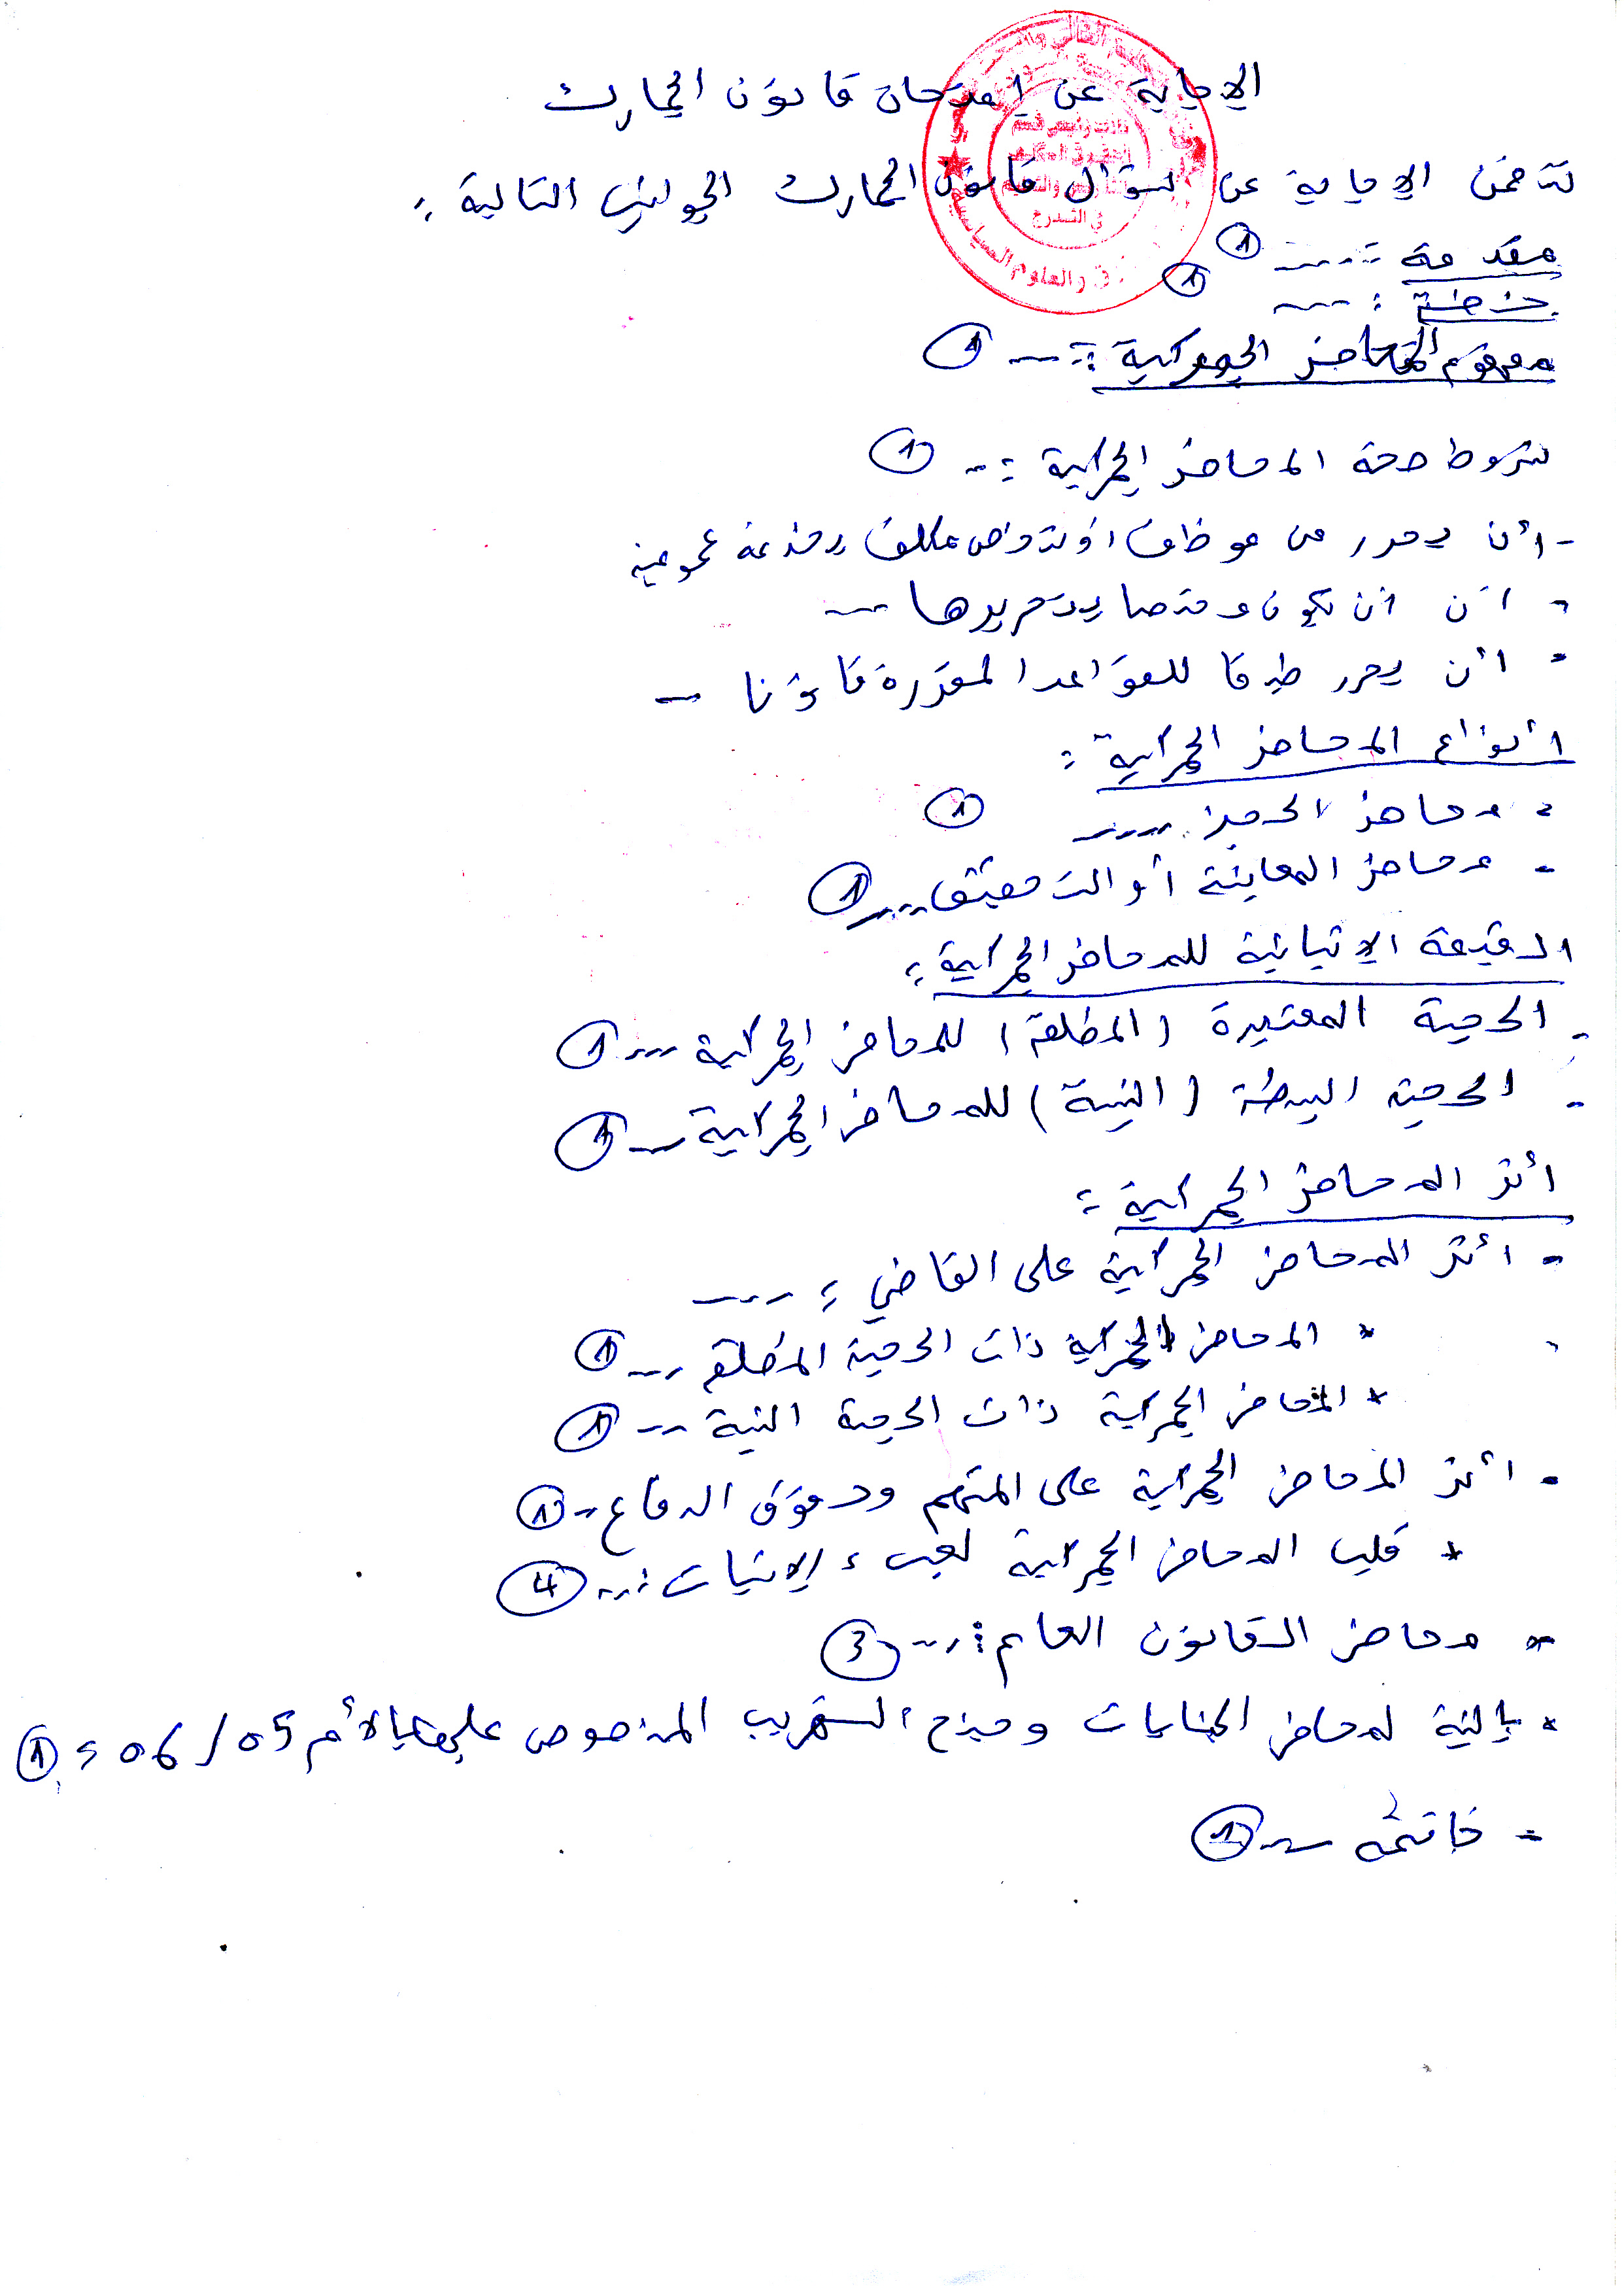 الإجابة عن إمتحان قانون الجمارك
تتضمن الإجابة عن سؤال قانون الجمارك الجوانب التالية :
مقدمة : ---- 1
خطة : --- 1
مفهوم المحاضر الجمركية : -- 1
شروط صحة المحاضر الجمركية : -- 1
- أن يحرر من موظف أو شخص مكلف بخدمة عمومية
- أن أن يكون مختصا بتحريرها ---
- أن يحرر طبقا للقواعد المقررة قانونا --
أنواع المحاضر الجمركية :
- محاضر الحجز ---- 1
- محاضر المعاينة أو التحقيق --- 1
القيمة الإثباتية للمحاضر الجمركية :
- الحجية المعتبرة (المطلقة) للمحاضر الجمركية --- 1
- الحجية البسيطة (النسبية) للمحاضر الجمركية -- 1
أثر المحاضر الجمركية :
- أثر المحاضر الجمركية على القاضي : ----
* المحاضر الجمركية ذات الحجية المطلقة --- 1
* المحاضر الجمركية ذات الحجية النسبية --- 1
- أثر المحاضر الجمركية على المتهم وحقوق الدفاع -- 1
* قلب المحاضر الجمركية لعبء الإثبات : --- 4
* محاضر القانون العام : --- 3
* بالنسبة لمحاضر الجنايات وجنح التهريب المنصوص عليها بالأمر 05/06 : 1
- خاتمة -- 1
في التدرج
والعلوم السياسية